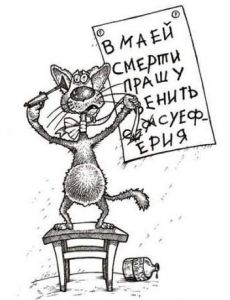 В МАЕЙ
СМЕРТИ
ПРАШУ
ЕНИТЬ
АСУЕФ-
ЕРИЯ